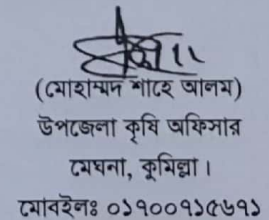 (মোহাম্মদ শাহে আলম)
উপজেলা কৃষি অফিসার
মেঘনা, কুমিল্লা।
মোবইলঃ ০১৭০০৭১৫৬৭১